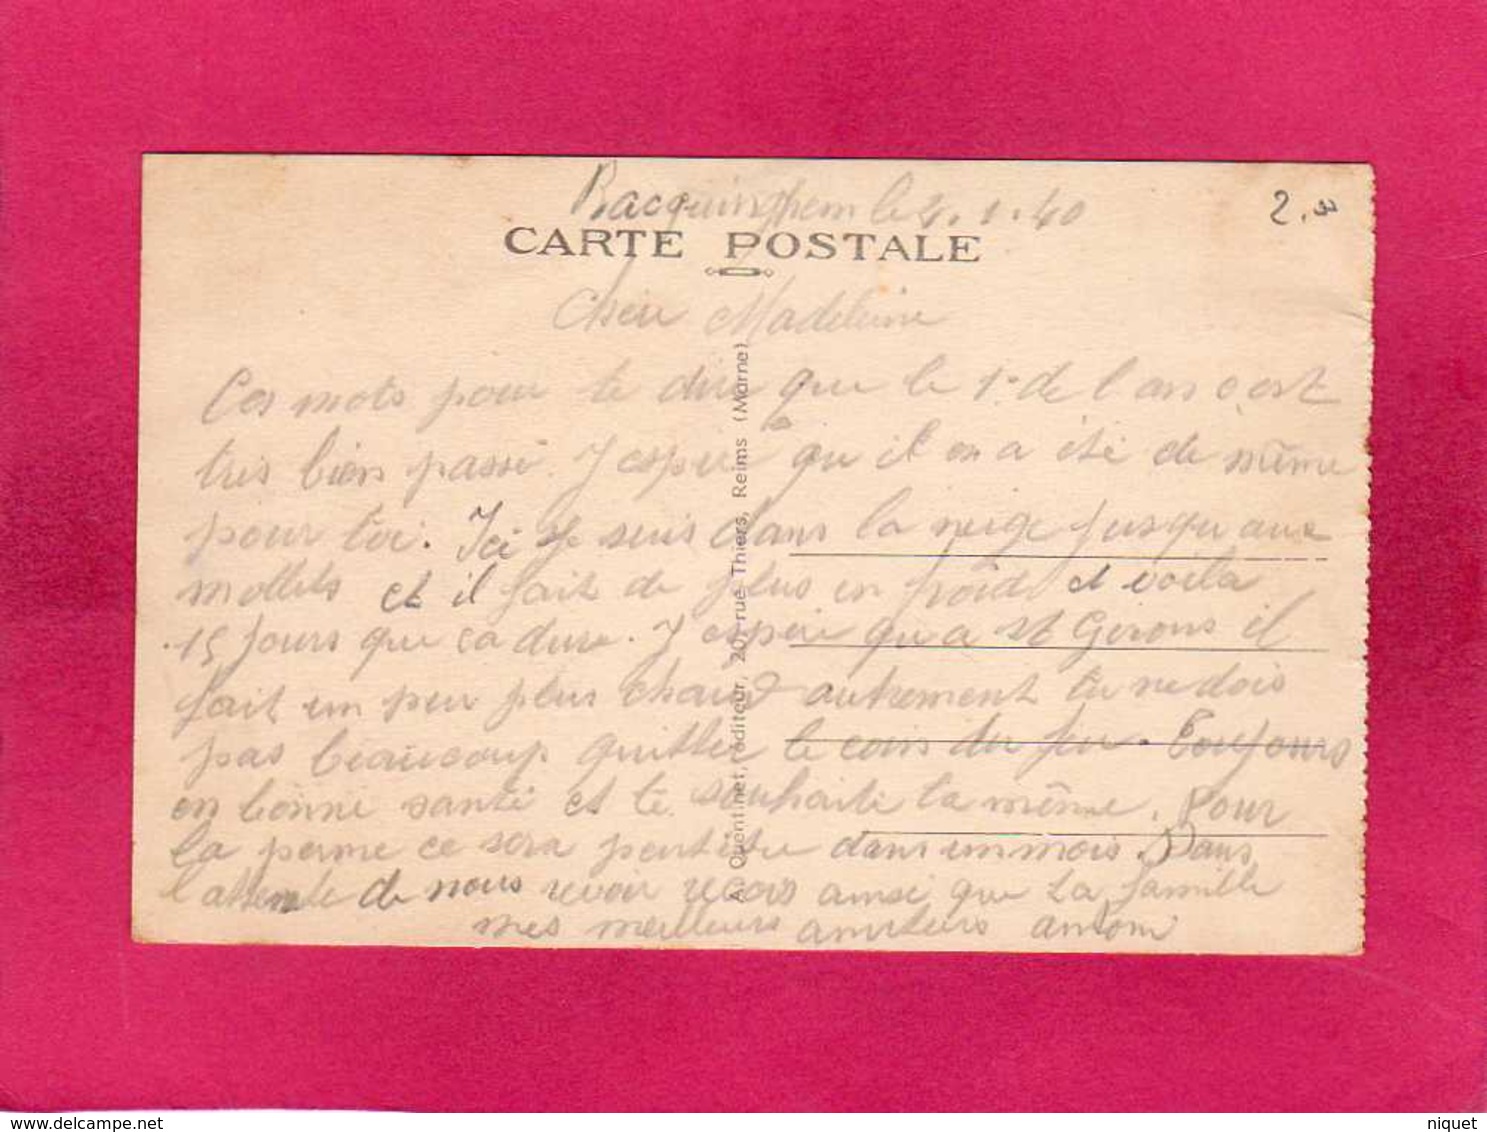 Racquinghem le 4.1.40
2.
CARTE POSTALE
Cher Madeleine
Ces mots pour te dire que le 1° de l'an c'est
très bien passé. J'espère qu'il en a été de même
pour toi. Ici je suis dans la neige jusqu'aux
mollets et il fait de plus en froid et voila
15 jours que ca dure. J'espère qu'a St Girons il
fait un peu plus chaud autrement tu ne dois
pas beaucoup quitter le coin du feu. Toujours
en bonne santé et te souhaite la même. Pour
la perme ce sera peut être dans un mois. Dans
l'attente de nous revoir recois ainsi que la famille
mes meilleurs amitiers
A. Quentinet, éditeur, 20, rue Thiers, Reims (Marne)
niquet
delcampe.net